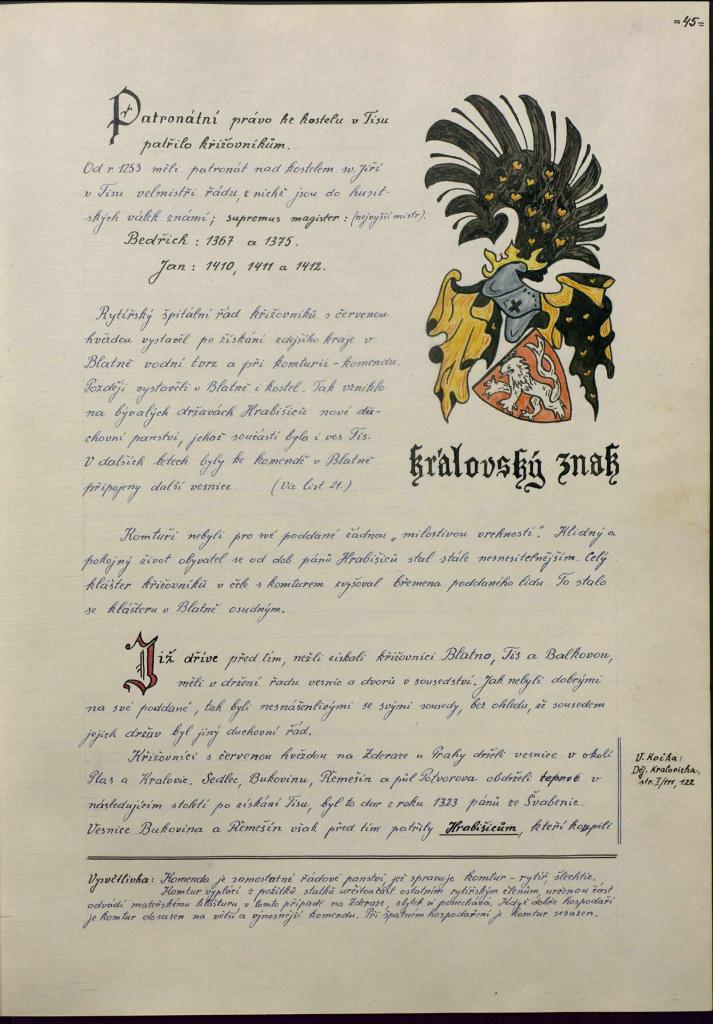 =45=
Patronátní právo ke kostelu v Tisu
patřilo křižovníkům.
Od r. 1253 měli patronát nad kostelem sv. Jiří
v Tisu velmistři řádu, z nichž jsou do husit-
ských válek známí; supremus magister: (nejvyšší mistr).
Bedřich: 1367 a 1375.
Jan: 1410, 1411 a 1412.
Rytířský špitální řád křižovníků s červenou
hvězdou vystavěl po získání zdejšího kraje v
Blatně vodní tvrz a při komturii - komendu.
Později vystavěli v Blatně i kostel. Tak vzniklo
na bývalých državách Hrabišiců nové du-
chovní panství, jehož součástí byla i ves Tis.
V dalších letech byly ke komendě v Blatně
připojeny další vesnice. (Viz list 21.)
královský znak
Komtuři nebyli pro své poddané žádnou „milostivou vrchností". Klidný a
pokojný život obyvatel se od dob pánů Hrabišiců stal stále nesnesitelnějším. Celý
klášter křižovníků v čele s komturem zvyšoval břemena poddaného lidu. To stalo
se klášteru v Blatně osudným.
Již dříve před tím, nežli získali křižovníci Blatno, Tis a Balkovou,
měli v držení řadu vesnic a dvorů v sousedství. Jak nebyli dobrými
na své poddané, tak byli nesnášenlivými se svými sousedy, bez ohledu, že sousedem
jejich držav byl jiný duchovní řád.
Křižovníci s červenou hvězdou na Zderaze u Prahy drželi vesnice v okolí
Plas a Kralovic. Sedlec, Bukovinu, Řemešín a půl Potvorova obdrželi teprvé v
následujícím století po získání Tisu, byl to dar z roku 1323 pánů ze Švabenic.
Vesnice Bukovina a Řemešín však před tím patřily Hrabišicům, kteří koupili
V. Kočka:
Děj. Kralovicka,
str. I/111, 122
Vysvětlivka: Komenda je samostatné řádové panství, jež spravuje komtur - rytíř, šlechtic.
Komtur vyplácí z požitků statků určitou část ostatním rytířským členům, určenou část
odvádí mateřskému klášteru, v tomto případě na Zderaze, zbytek si ponechává. Když dobře hospodaří
je komtur dosazen na větší a výnosnější komendu. Při špatném hospodaření je komtur sesazen.